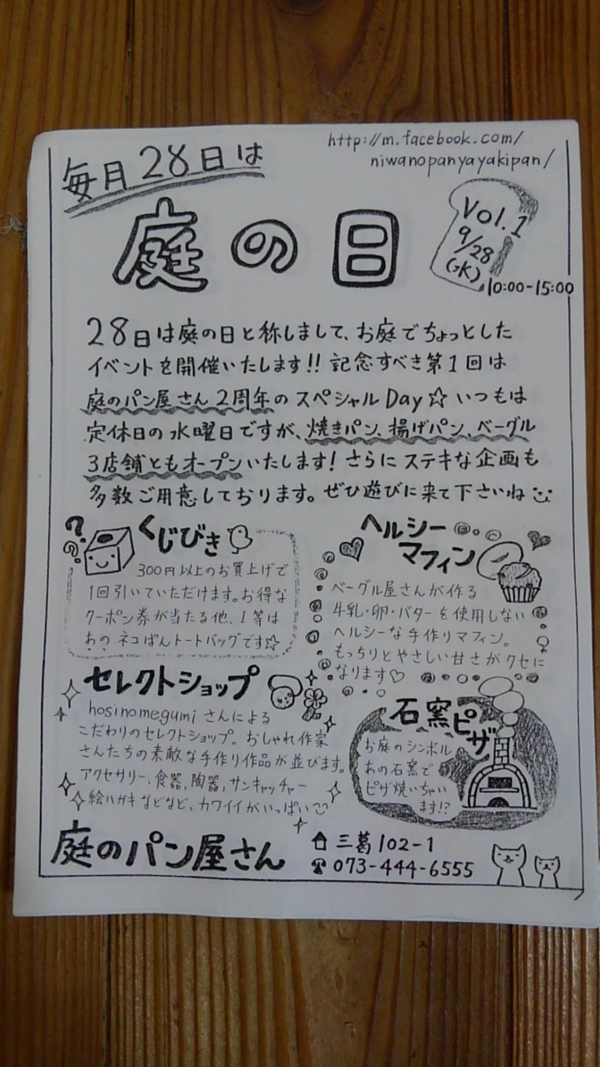 毎月28日は
http://m.facebook.com/
niwanopanyayakipan/
庭の日
Vol.1
9/28
(水)
10:00-15:00
28日は庭の日と称しまして、お庭でちょっとした
イベントを開催いたします!!記念すべき第1回は
庭のパン屋さん2周年のスペシャルDay☆いつもは
定休日の水曜日ですが、焼きパン、揚げパン、ベーグル
3店舗ともオープンいたします!さらにステキな企画も
多数ご用意しております。ぜひ遊びに来て下さいね
???
くじびき
300円以上のお買上げで
1回引いていただけます。お得な
クーポン券が当たる他、1等は
あのネコぱんトートバッグです☆
ヘルシー
マフィン
ベーグル屋さんが作る
牛乳・卵・バターを使用しない
ヘルシーな手作りマフィン。
もっちりとやさしい甘さがクセに
なります♡
セレクトショップ
hosinomegumiさんによる
こだわりのセレクトショップ。おしゃれ作家
さんたちの素敵な手作り作品が並びます。
アクセサリー,食器,陶器,サンキャッチャー
絵ハガキなどなど、カワイイがいっぱい
石窯ピザ
お庭のシンボル
あの石窯で
ピザ焼いちゃい
ます!?
庭のパン屋さん
三葛102-1
073-444-6555